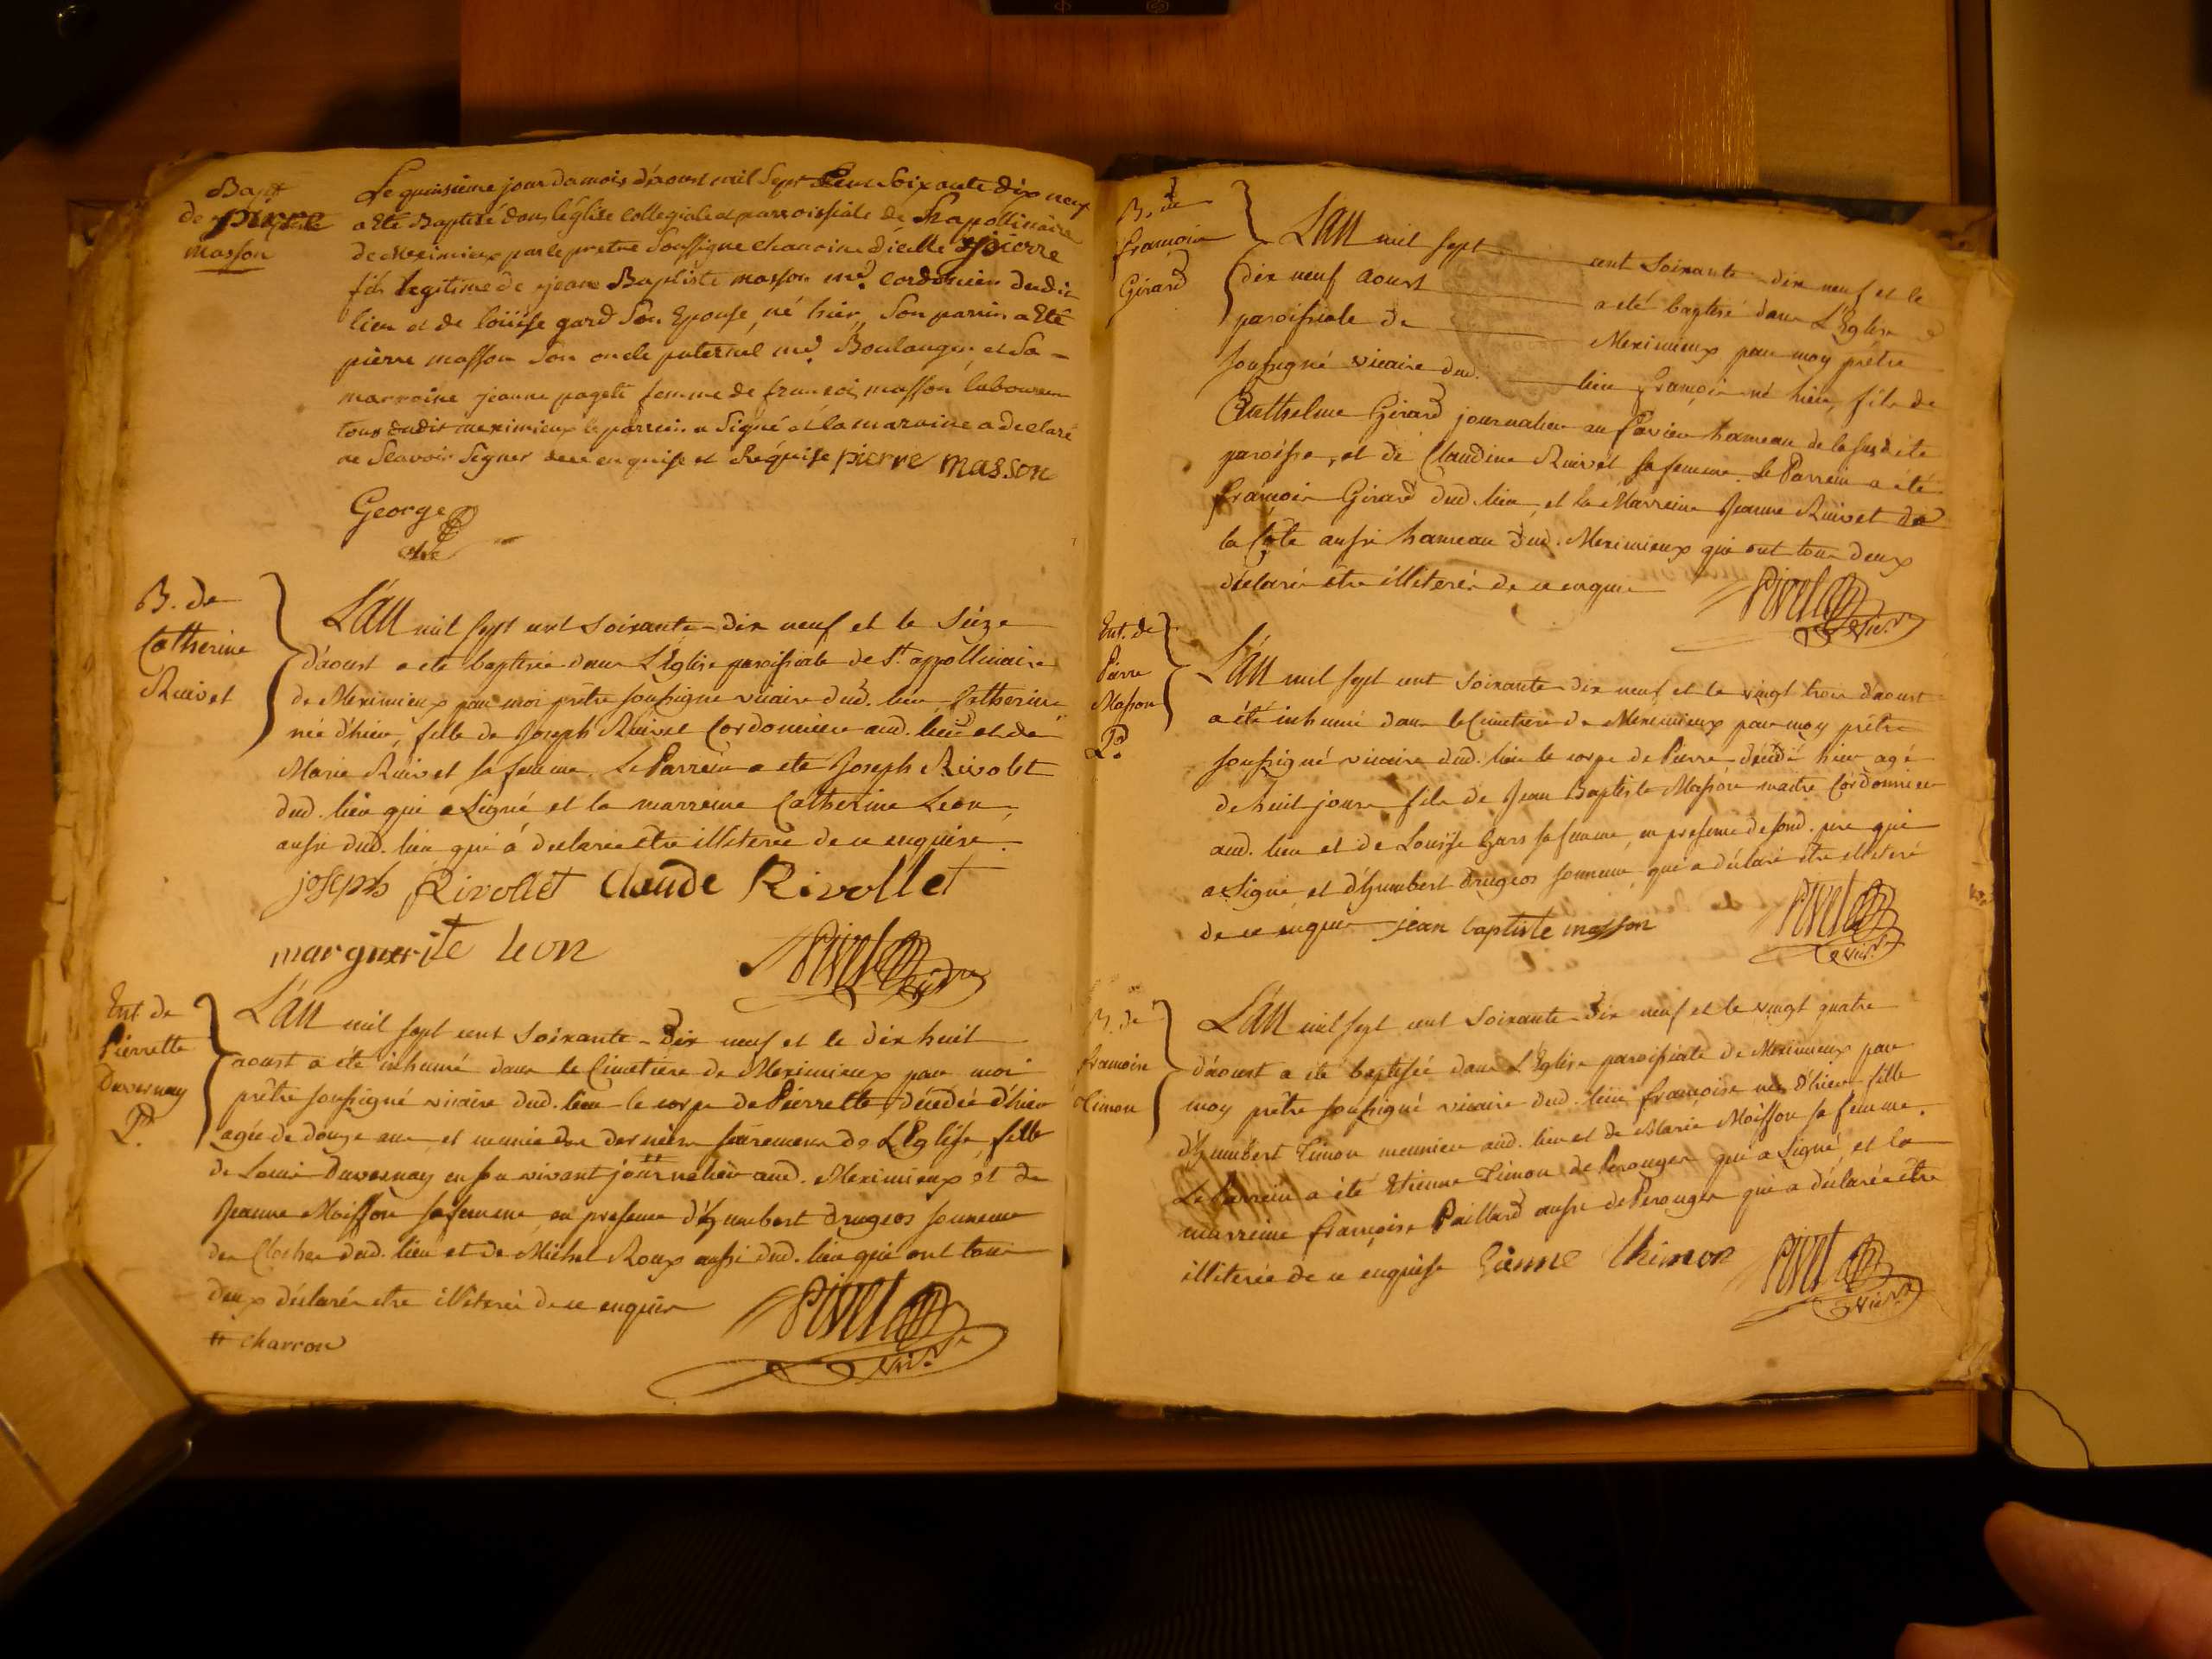 Bapt
de pierre
masson
Le quinsième jour du mois d'aoust mil Sept Cent Soixante dix neuf
a Eté Baptisé dans l'église collegiale et parroissiale de St apollinaire
de Meximieux par le prêtre Soussigné chanoine d'icelle pierre
fils legitime de jean Baptiste masson md. cordonnier dudit
lieu et de loüise gard Son Epouse, né hier, Son parrin a Eté
pierre masson Son oncle paternel md. Boulanger et Sa
marraine jeanne pagete femme de francois masson laboureur
tous dudit meximieux le parrein a Signé et la maraine a declaré
ne Scavoir Signer de ce enquise et Réquise pierre masson
George
B. de
Catherine
Ruivet
L'an mil sept cent soixante-dix neuf et le seize
d'aoust a eté baptisée dans L'Eglise paroissiale de St. appollinaire
de Meximieux par moi prêtre soussigné vicaire dud. lieu Catherine
née d'hier, fille de Joseph Ruivet Cordonnier aud. lieu et de
Marie Ruivet sa femme. Le Parrein a eté Joseph Rivolet
dud. lieu qui a signé et la marreine Catherine Leon,
aussi dud. lieu qui a declarée être illeterée de ce enquise.
joseph Rivollet Claude Rivollet
marguerite leon
Ent. de
Pierrette
Duvernay
L'an mil sept cent soixante-dix neuf et le dix huit
aoust a été inhumé dans le Cimetiere de Meximieux par moi
prêtre soussigné vicaire dud. lieu le corps de Pierrette, décédée d'hier
agée de douze ans et munie des derniers sacremens de L'Eglise, fille
de Louis Duvernay en son vivant journalier aud. Meximieux et de
Jeanne Moisson sa femme, en presence d'humbert drugeos sonneur
des Cloches dud. lieu et de Michel Roux aussi dud. lieu qui ont tous
deux déclarés etre illiterés de ce enquis
# charron
B. de
françois
Girard
L'an mil sept cent soixante-dix neuf et le
dix neuf aoust a été baptisé dans L'Eglise
paroissiale de Meximieux par moy prêtre
soussigné vicaire dud. lieu françois né hier, fils de
Anthelme Girard journalier au hameau de la susdite
paroisse, et de Claudine Ruivet sa femme. Le Parrein a été
françois Girard dud. lieu, et la Marreine Jeanne Ruivet de
la Côte aussi hameau dud. Meximieux qui ont tous deux
déclarés être illiterés de ce enquis
Ent. de
Pierre
Masson
L'an mil sept cent soixante-dix neuf et le vingt trois d'aoust
a été inhumé dans le Cimetiere de Meximieux par moy prêtre
soussigné vicaire dud. lieu le corps de Pierre décédé hier agé
de huit jours fils de Jean Baptiste Masson maitre Cordonnier
aud. lieu et de Louïse Gars sa femme, en presence de sond. pere qui
a signé et d'humbert Drugeos sonneur, qui a déclaré être illiteré
de ce enquis jean baptiste masson
B. de
francoise
Timon
L'an mil sept cent soixante-dix neuf et le vingt quatre
d'aoust a été baptisée dans L'Eglise paroissiale de Meximieux par
moy prêtre soussigné vicaire dud. lieu françoise née d'hier fille
d'humbert Timon meunier aud. lieu et de Marie Moisson sa femme.
Le Parrein a été Etienne Timon de Perouges qui a signé, et la
marreine françoise Paillard aussi de Perouges qui a déclarée être
illiterée de ce enquise Etienne thimon